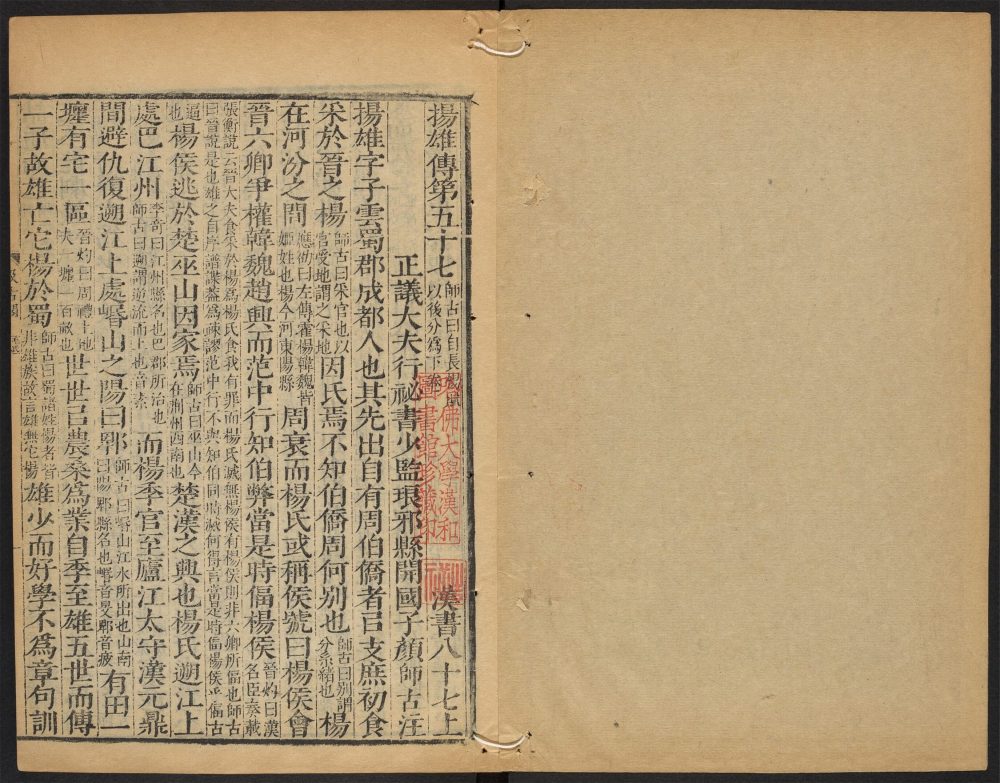 揚雄傳第五十七 師古曰自長楊賦以後分爲下卷 漢書八十七上
正議大夫行祕書少監琅邪縣開國子顏師古注
揚雄字子雲蜀郡成都人也其先出自有周伯僑者㠯支庶初食
采於晉之楊 師古曰采官也以官受地謂之采地 因氏焉不知伯僑周何別也 師古曰別謂分系緒也 楊
在河汾之間 應劭曰左傳霍楊韓魏皆姬姓也楊今河東楊縣 周衰而楊氏或稱侯號曰楊侯會
晉六卿爭權韓魏趙興而范中行知伯弊當是時偪楊侯 晉灼曰漢名臣奏載
張衡說云晉大夫食采於楊爲楊氏食我有罪而楊氏滅無楊侯有楊侯則非六卿所偪也師古
曰晉說是也雄之自序譜諜蓋爲疎謬范中行不與知伯同時滅何得言當是時偪楊侯乎偪古
逼也 楊侯逃於楚巫山因家焉 師古曰巫山今在荊州西南也 楚漢之興也楊氏遡江上
處巴江州 李奇曰江州縣名也巴郡所治也師古曰遡謂逆流而上也音素 而楊季官至廬江太守漢元鼎
間避仇復遡江上處崏山之陽曰郫 師古曰崏山江水所出也山南曰陽郫縣名也崏音旻郫音疲 有田一
㙻有宅一區 晉灼曰周禮上地夫一㙻一百畝也 世世㠯農桑爲業自季至雄五世而傳
一子故雄亡它楊於蜀 師古曰蜀諸姓楊者皆非雄族故言雄無它楊 雄少而好學不爲章句訓
哈佛大學漢和
圖書館珍藏印